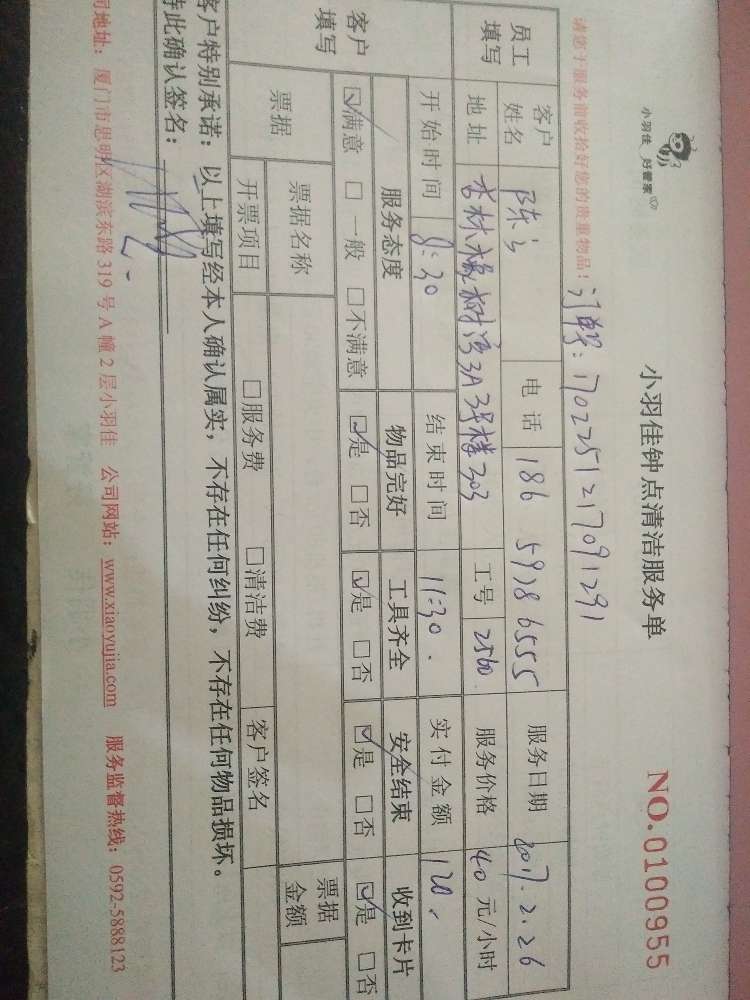 小羽佳 好管家
小羽佳钟点清洁服务单
NO.0100955
请您于服务前收拾好您的贵重物品！
订单号：1702251217091291
员工填写 客户姓名 陈 电话 186 5928 6555 服务日期 2017.2.26
地址 杏林橡树湾3A 3号楼303 工号 2560 服务价格 40 元/小时
开始时间 8:30 结束时间 11:30. 实付金额 120.
客户填写 服务态度 物品完好 工具齐全 安全结束 收到卡片
☑满意 □一般 □不满意 ☑是 □否 ☑是 □否 ☑是 □否 ☑是 □否
票据 票据名称 票据金额
开票项目 □服务费 □清洁费 客户签名
客户特别承诺：以上填写经本人确认属实，不存在任何纠纷，不存在任何物品损坏。
特此确认签名：
司地址：厦门市思明区湖滨东路 319 号 A 幢 2 层小羽佳 公司网站：www.xiaoyujia.com 服务监督热线：0592-5888123